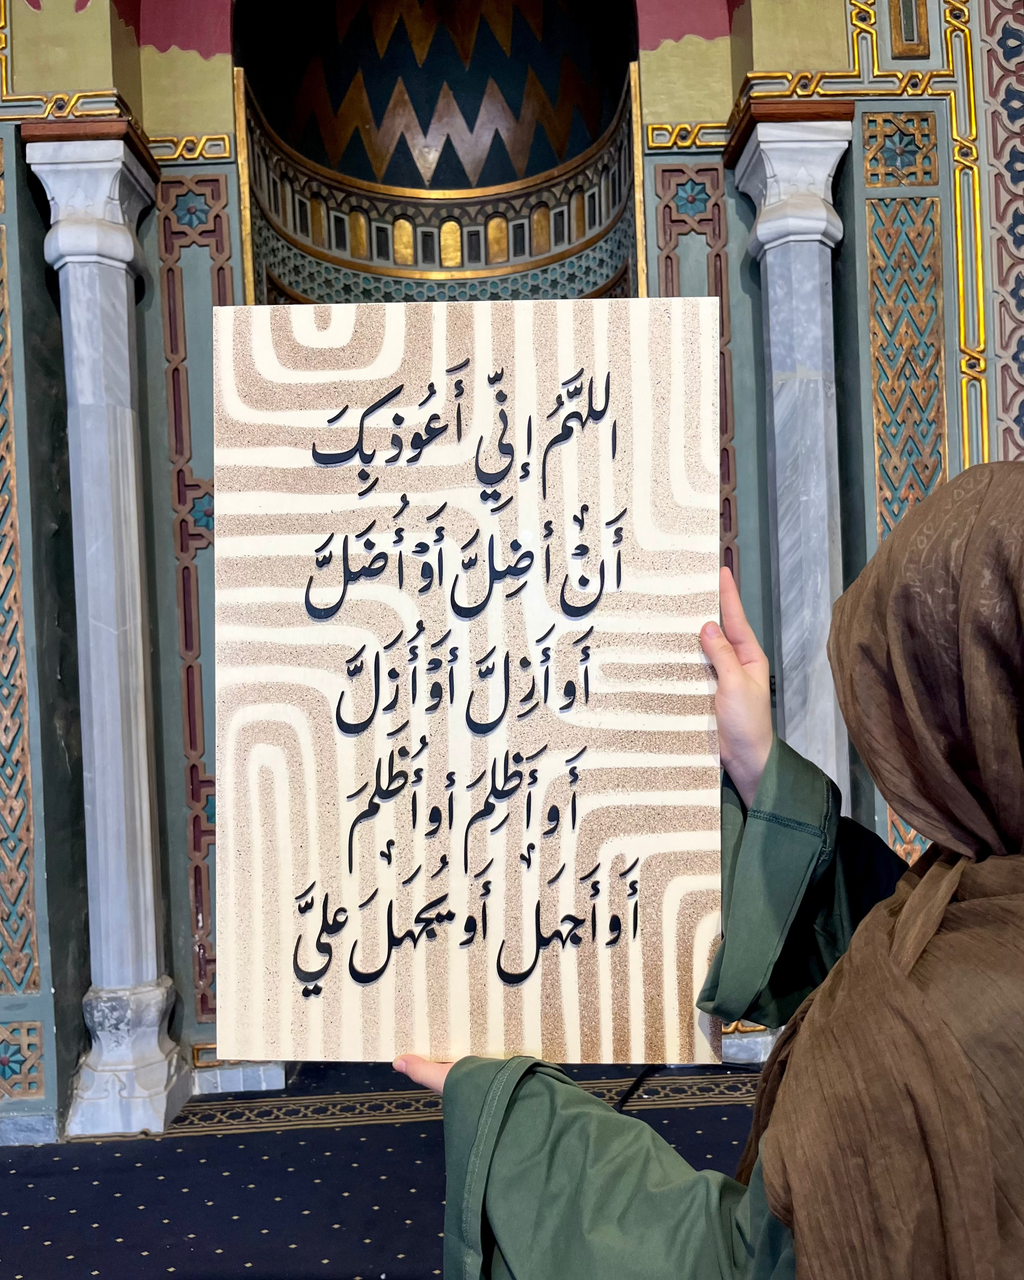 اللهَّمُ إِنِّي أَعُوذبِكَ
أَنْ أَضِلَّ أَوْأُضَلَّ
أَو أَزِلَّ أَوْأُزَلَّ
أَو أَظلِمَ أَو أُظلمَ
أَو أَجهلَ أَو يُجهلَ عليَّ